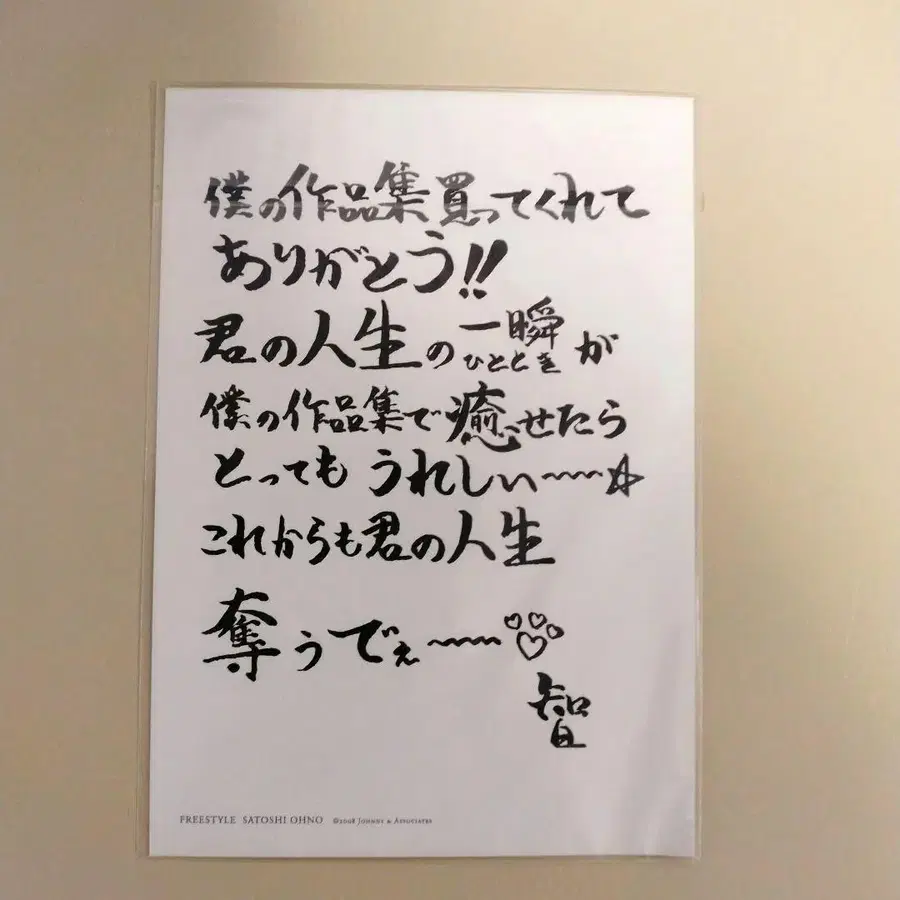 僕の作品集買ってくれて
ありがとう!!
君の人生の一瞬が
ひととき
僕の作品集で癒せたら
とってもうれしい〜〜〜☆
これからも君の人生
奪うでぇ〜〜〜♡♡♡♡
智
FREESTYLE SATOSHI OHNO ©2008 JOHNNY & ASSOCIATES